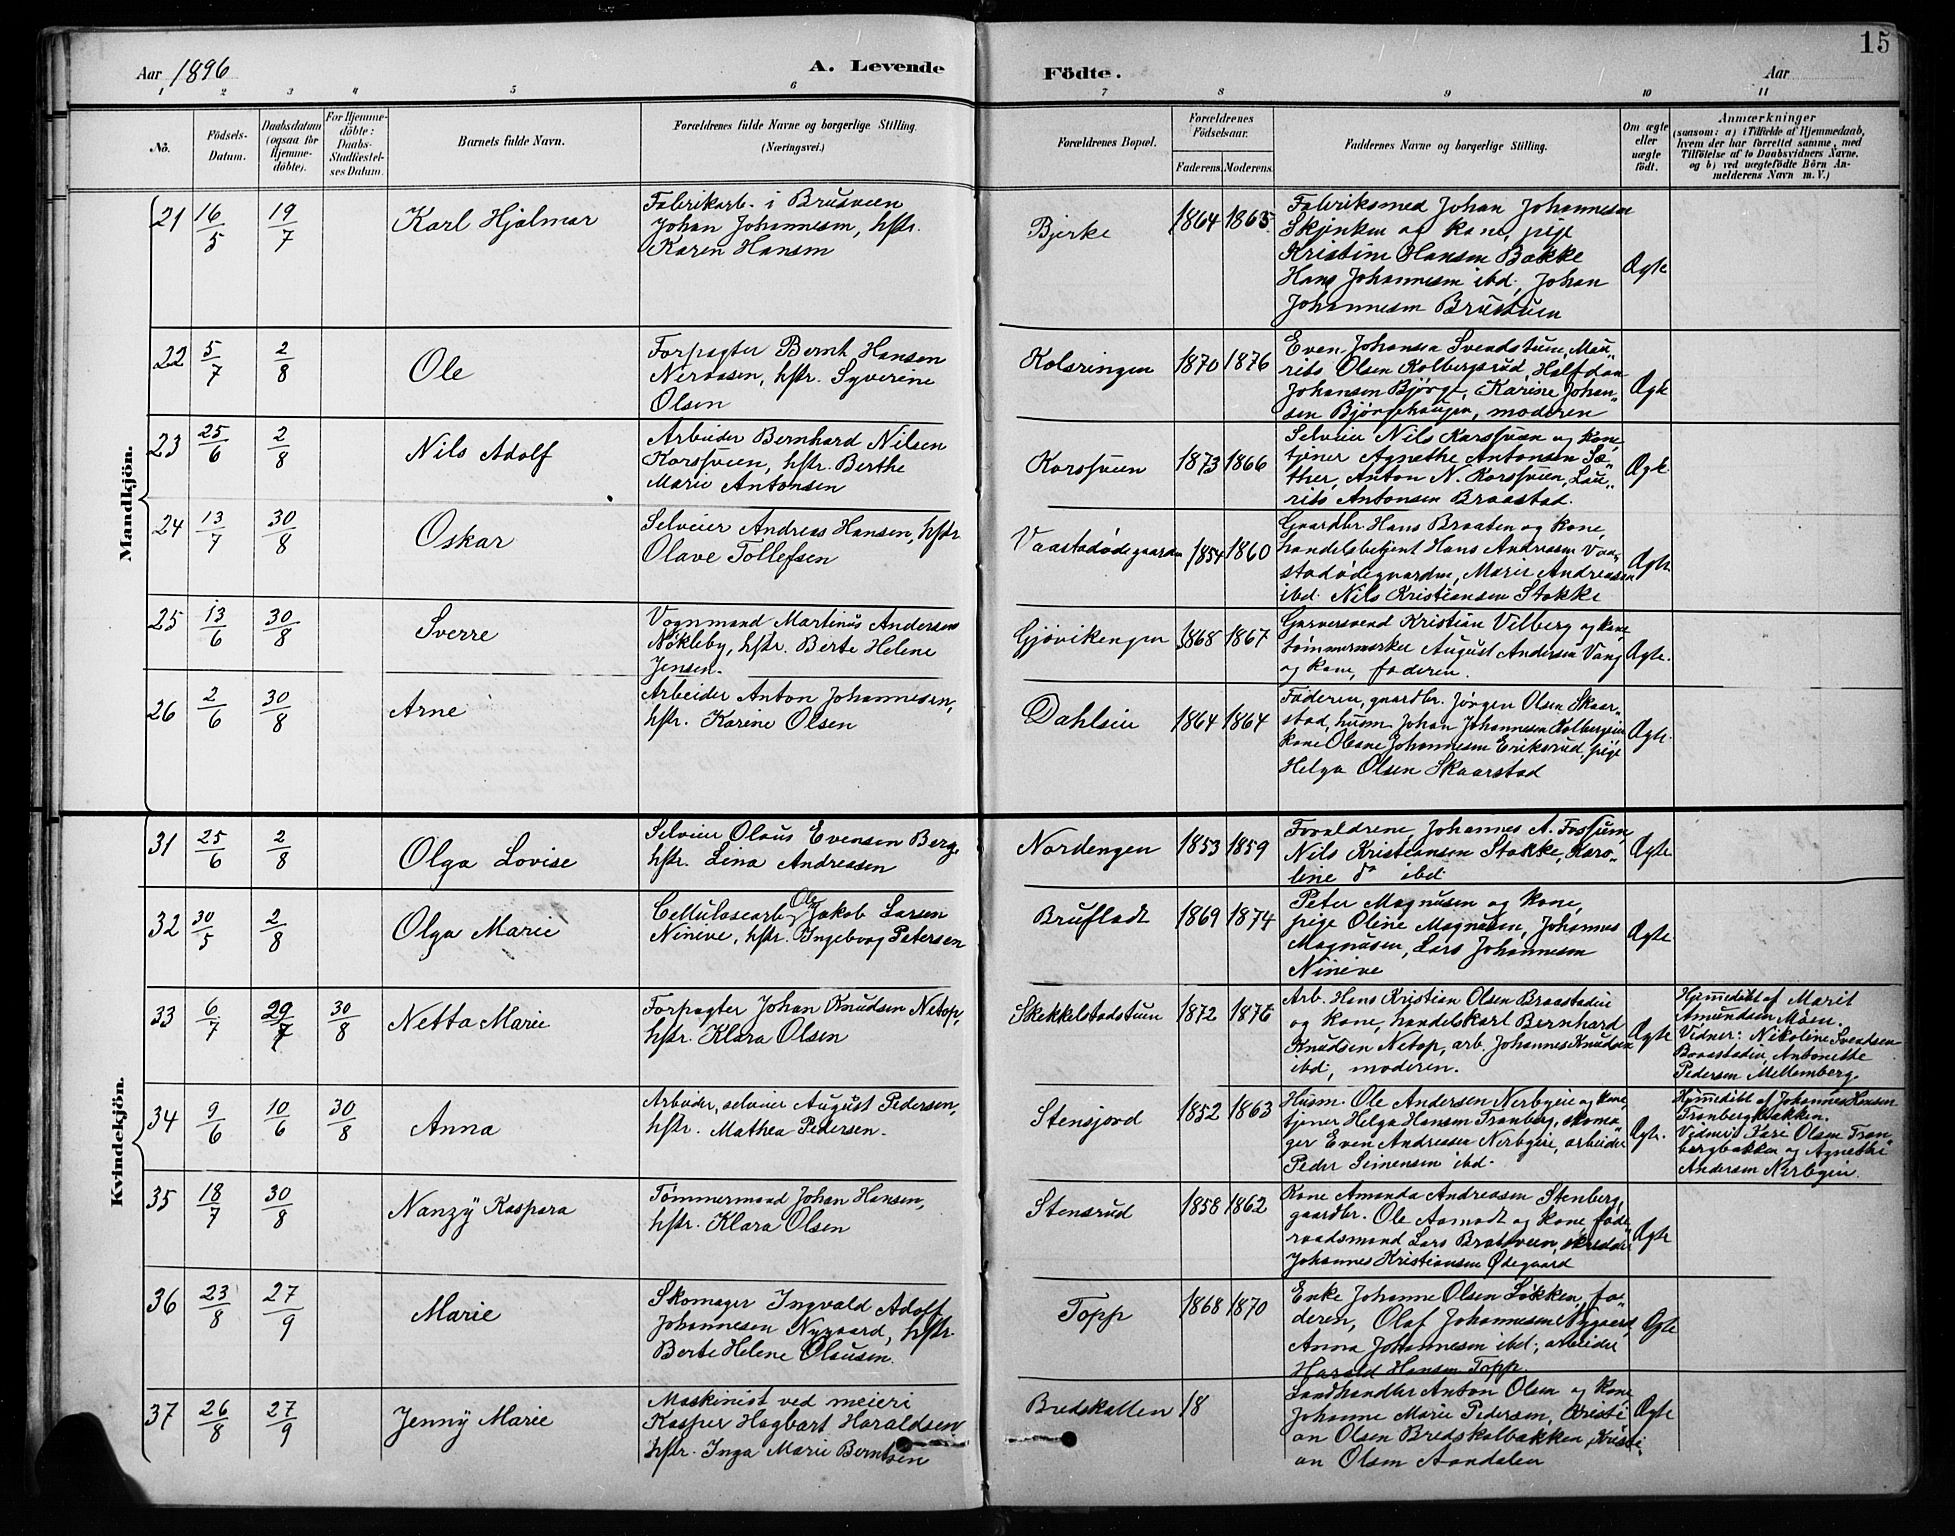 15
Aar 1896
A. Levende
Födte.
Aar
1 2 3 4 5 6 7 8 9 10 11
No.
Födsels-
Datum.
Daabsdatum
(ogsaa for
Hjemme-
döbte).
For Hjemme-
döbte:
Daabs-
Stadfæstel-
ses Datum.
Barnets fulde Navn.
Forældrenes fulde Navne og borgerlige Stilling.
(Næringsvei.)
Forældrenes Bopæl.
Forældrenes
Födselsaar.
Faderens. Moderens.
Faddernes Navne og borgerlige Stilling.
Om ægte
eller
uægte
födt.
Anmærkninger
(saasom: a) i Tilfælde af Hjemmedaab,
hvem der har forrettet samme, med
Tilföielse af to Daabsvidners Navne.
og b) ved uægtefödte Börn An-
melderens Navn m. V.)
Mandkjön.
21 16/5 19/7 Karl Hjalmar
Fabrikarb. i Brusveen
Johan Johannesen, hstr.
Karen Hansen
Bjerke 1864 1865.
Fabriksmed Johan Johannesen
Skjenken og kone, pige
Kristine Hansen Bakke
Hans Johannesen ibd; Johan
Johannesen Brustuen
Ægte
22 5/7 2/8 Ole
Forpagter Bernt Hansen
Neraasen, hstr. Syverine
Olsen
Kolsringen 1870 1876
Even Johansen Svendstuen, Mau„
rits Olsen Kolbergsrud, Halfdan
Johansen Bjørge, Karine Johan„
sen Bjørgehaugen, moderen
Ægte
23 25/6 2/8 Nils Adolf
Arbeider Bernhard Nilsen
Korsveen, hstr. Berthe
Marie Antonsen
Korsveen 1873 1866
Selveier Nils Korsveen og kone,
tjener Agnethe Antonsen Sæ„
ther, Anton N. Korsveen, Lau„
rits Antonsen Braastad.
Ægte
24 13/7 30/8 Oskar
Selveier Andreas Hansen, hstr
Olave Tollefsen
Vaastadødegaarden 1854 1860
Gaardbr Hans Braaten og kone,
handelsbetjent Hans Andreasen Vaa„
stadødegaarden, Marie Andreasen
ibd. Nils Kristiansen Stokke
Ægte
25 13/6 30/8 Sverre
Vognmand Martinus Andersen
Nøkleby, hstr. Berte Helene
Jensen.
Gjøvikengen 1868 1867
Garversvend Kristian Vilberg og kone
tømmermerker August Andersen Vang
og kone, faderen.
Ægte.
26 2/6 30/8 Arne
Arbeider Anton Johannesen,
hstr. Karene Olsen
Dahlseie 1864 1864
Faderen, gaardbr. Jørgen Olsen Skaar„
stad, husm. Johan Johannesen Kolbergseie
kone Oleane Johannesen Eriksrud, pige
Helga Olsen Skaarstad
Ægte.
Kvindekjön.
31 25/6 2/8 Olga Lovise
Selveier Olaus Evensen Berg,
hstr. Lina Andreasen
Nordengen 1853 1859
Forældrene, Johannes A. Fossum,
Nils Kristiansen Stokke, Karo„
line do ibd.
Ægte
32 30/5 2/8 Olga Marie
Cellulosearb. Ole Jakob Larsen
Nineve, hstr. Ingeborg Petersen
Brufladt 1869 1874
Peter Magnusen og kone,
pige Oline Magnusen, Johannes
Magnusen, Lars Johannesen
Nineve
Ægte
33 6/7 29/7 30/8 Netta Marie
Forpagter Johan Knudsen Netop,
hstr. Klara Olsen
Skekkelstadstuen 1872 1876
Arb. Hans Kristian Olsen Braastadeie
og kone, handelskarl Bernhard
Knudsen Netop, arb. Johannes Knudsen
ibd, moderen.
Ægte
Hjemmedøbt af Marit
Amundsen Moen.
Vidner: Nikoline Svendsen
Braastadeie, Antonette
Pedersen Mellemberg.
34 9/6 10/6 30/8 Anna
Arbeider, selveier August Pedersen,
hstr. Mathea Pedersen.
Stensjord 1852 1863
Husm. Ole Andersen Nerbyeie og kone,
tjener Helga Hansen Tranberg, skoma„
ger Even Andresen Nerbyeie, arbeider
Peder Simensen ibd.
Ægte.
Hjemmedøbt af Johannes Hansen
Tranbergbakken.
Vidner: Kari Olsen Tran„
bergbakken og Agnethe
Andersen Nerbyeie.
35 18/7 30/8 Nanzÿ Kaspara
Tømmermand Johan Hansen,
hstr. Klara Olsen
Stensrud 1858 1862
Kone Amanda Andreasen Stenberg,
gaardbr. Ole Aamodt og kone, føde„
raadsmand Lars Bratsveen, skrædder
Johannes Kristiansen Ødegaard
Ægte
36 23/8 27/9 Marie
Skomager Ingvald Adolf
Johannesen Nygaard, hstr.
Berte Helene Olausen.
Topp 1868 1870
Enke Johanne Olsen Løkken, fa„
deren, Olaf Johannesen Nygaard,
Anna Johannesen ibd., arbeider
Harald Hansen Topp.
Ægte
37 26/8 27/9 Jennÿ Marie
Maskinist ved meieri
Kasper Hagbart Haraldsen
hstr. Inga Marie Berntsen
Bredskallen 18
Landhandler Anton Olsen og kone
Johanne Marie Pedersen, Kristi„
an Olsen Bredskalbakken, Kristi„
an Olsen Aandalen
Ægte